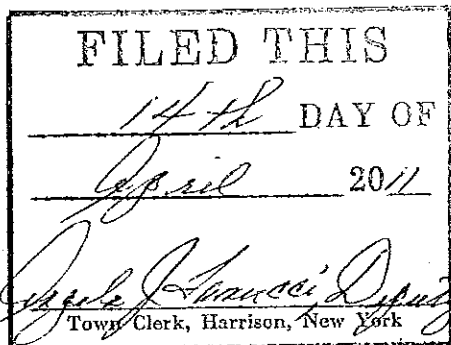 FILED THIS
14th DAY OF
April 2011
Angela J. Deputy
Town Clerk, Harrison, New York